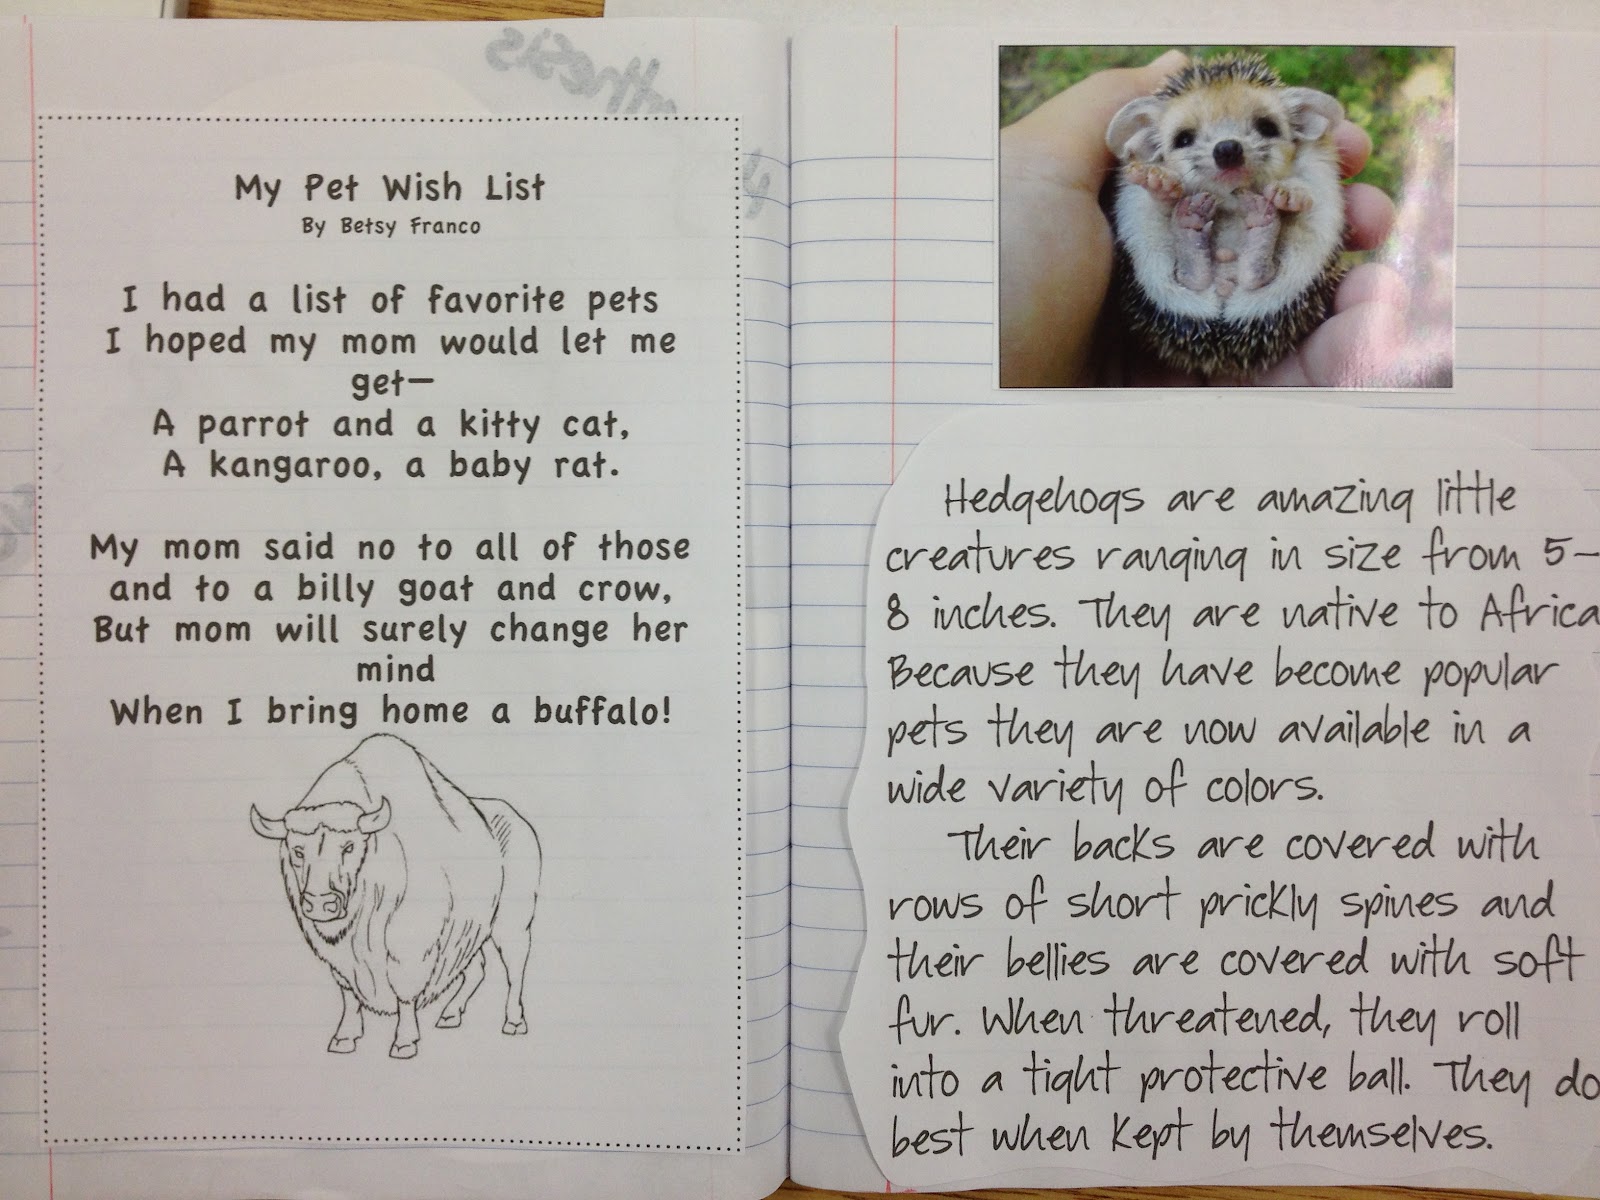 My Pet Wish List
By Betsy Franco
I had a list of favorite pets
I hoped my mom would let me
get—
A parrot and a kitty cat,
A kangaroo, a baby rat.
My mom said no to all of those
and to a billy goat and crow,
But mom will surely change her
mind
When I bring home a buffalo!
Hedgehogs are amazing little
creatures ranging in size from 5-
8 inches. They are native to Africa
Because they have become popular
pets they are now available in a
wide variety of colors.
Their backs are covered with
rows of short prickly spines and
their bellies are covered with soft
fur. When threatened, they roll
into a tight protective ball. They do
best when kept by themselves.